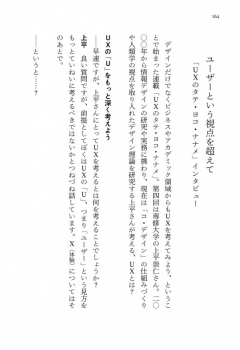 164
ユーザーという視点を超えて
「UXのタテ、ヨコ・ナナメ」インタビュー
デザインだけでなくビジネスやアカデミック領域からもUXを考えてみよう、というこ
とで始まった連載「UXのタテ・ヨコ・ナナメ」。第四回は専修大学の上平崇仁さん。二〇
〇〇年から情報デザインの研究や実務に携わり、現在は「コ・デザイン」の仕組みづくり
や人類学の視点を取り入れたデザイン理論を研究する上平さんが考える、UXとは？
UXの「U」をもっと深く考えよう
——早速ですが、上平さんにとってUXを考えることとは何を考えることでしょうか？
上平　良い質問ですが、前提としてぼくはUXの「U」、つまり「ユーザー」という見方を
もっとていねいに考えるべきではないかとつねづね話しています。X（体験）について考えるのはそ
のあとで。
——というと……？